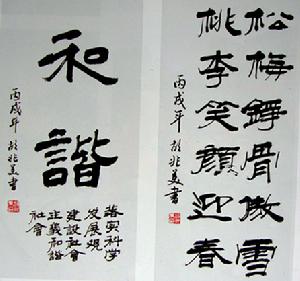 松梅錚骨傲雪
桃李笑顏迎春
丙戌年 兆美書
和諧
落实科学
发展观
建設社會
主義和諧
社會
丙戌年 兆美書